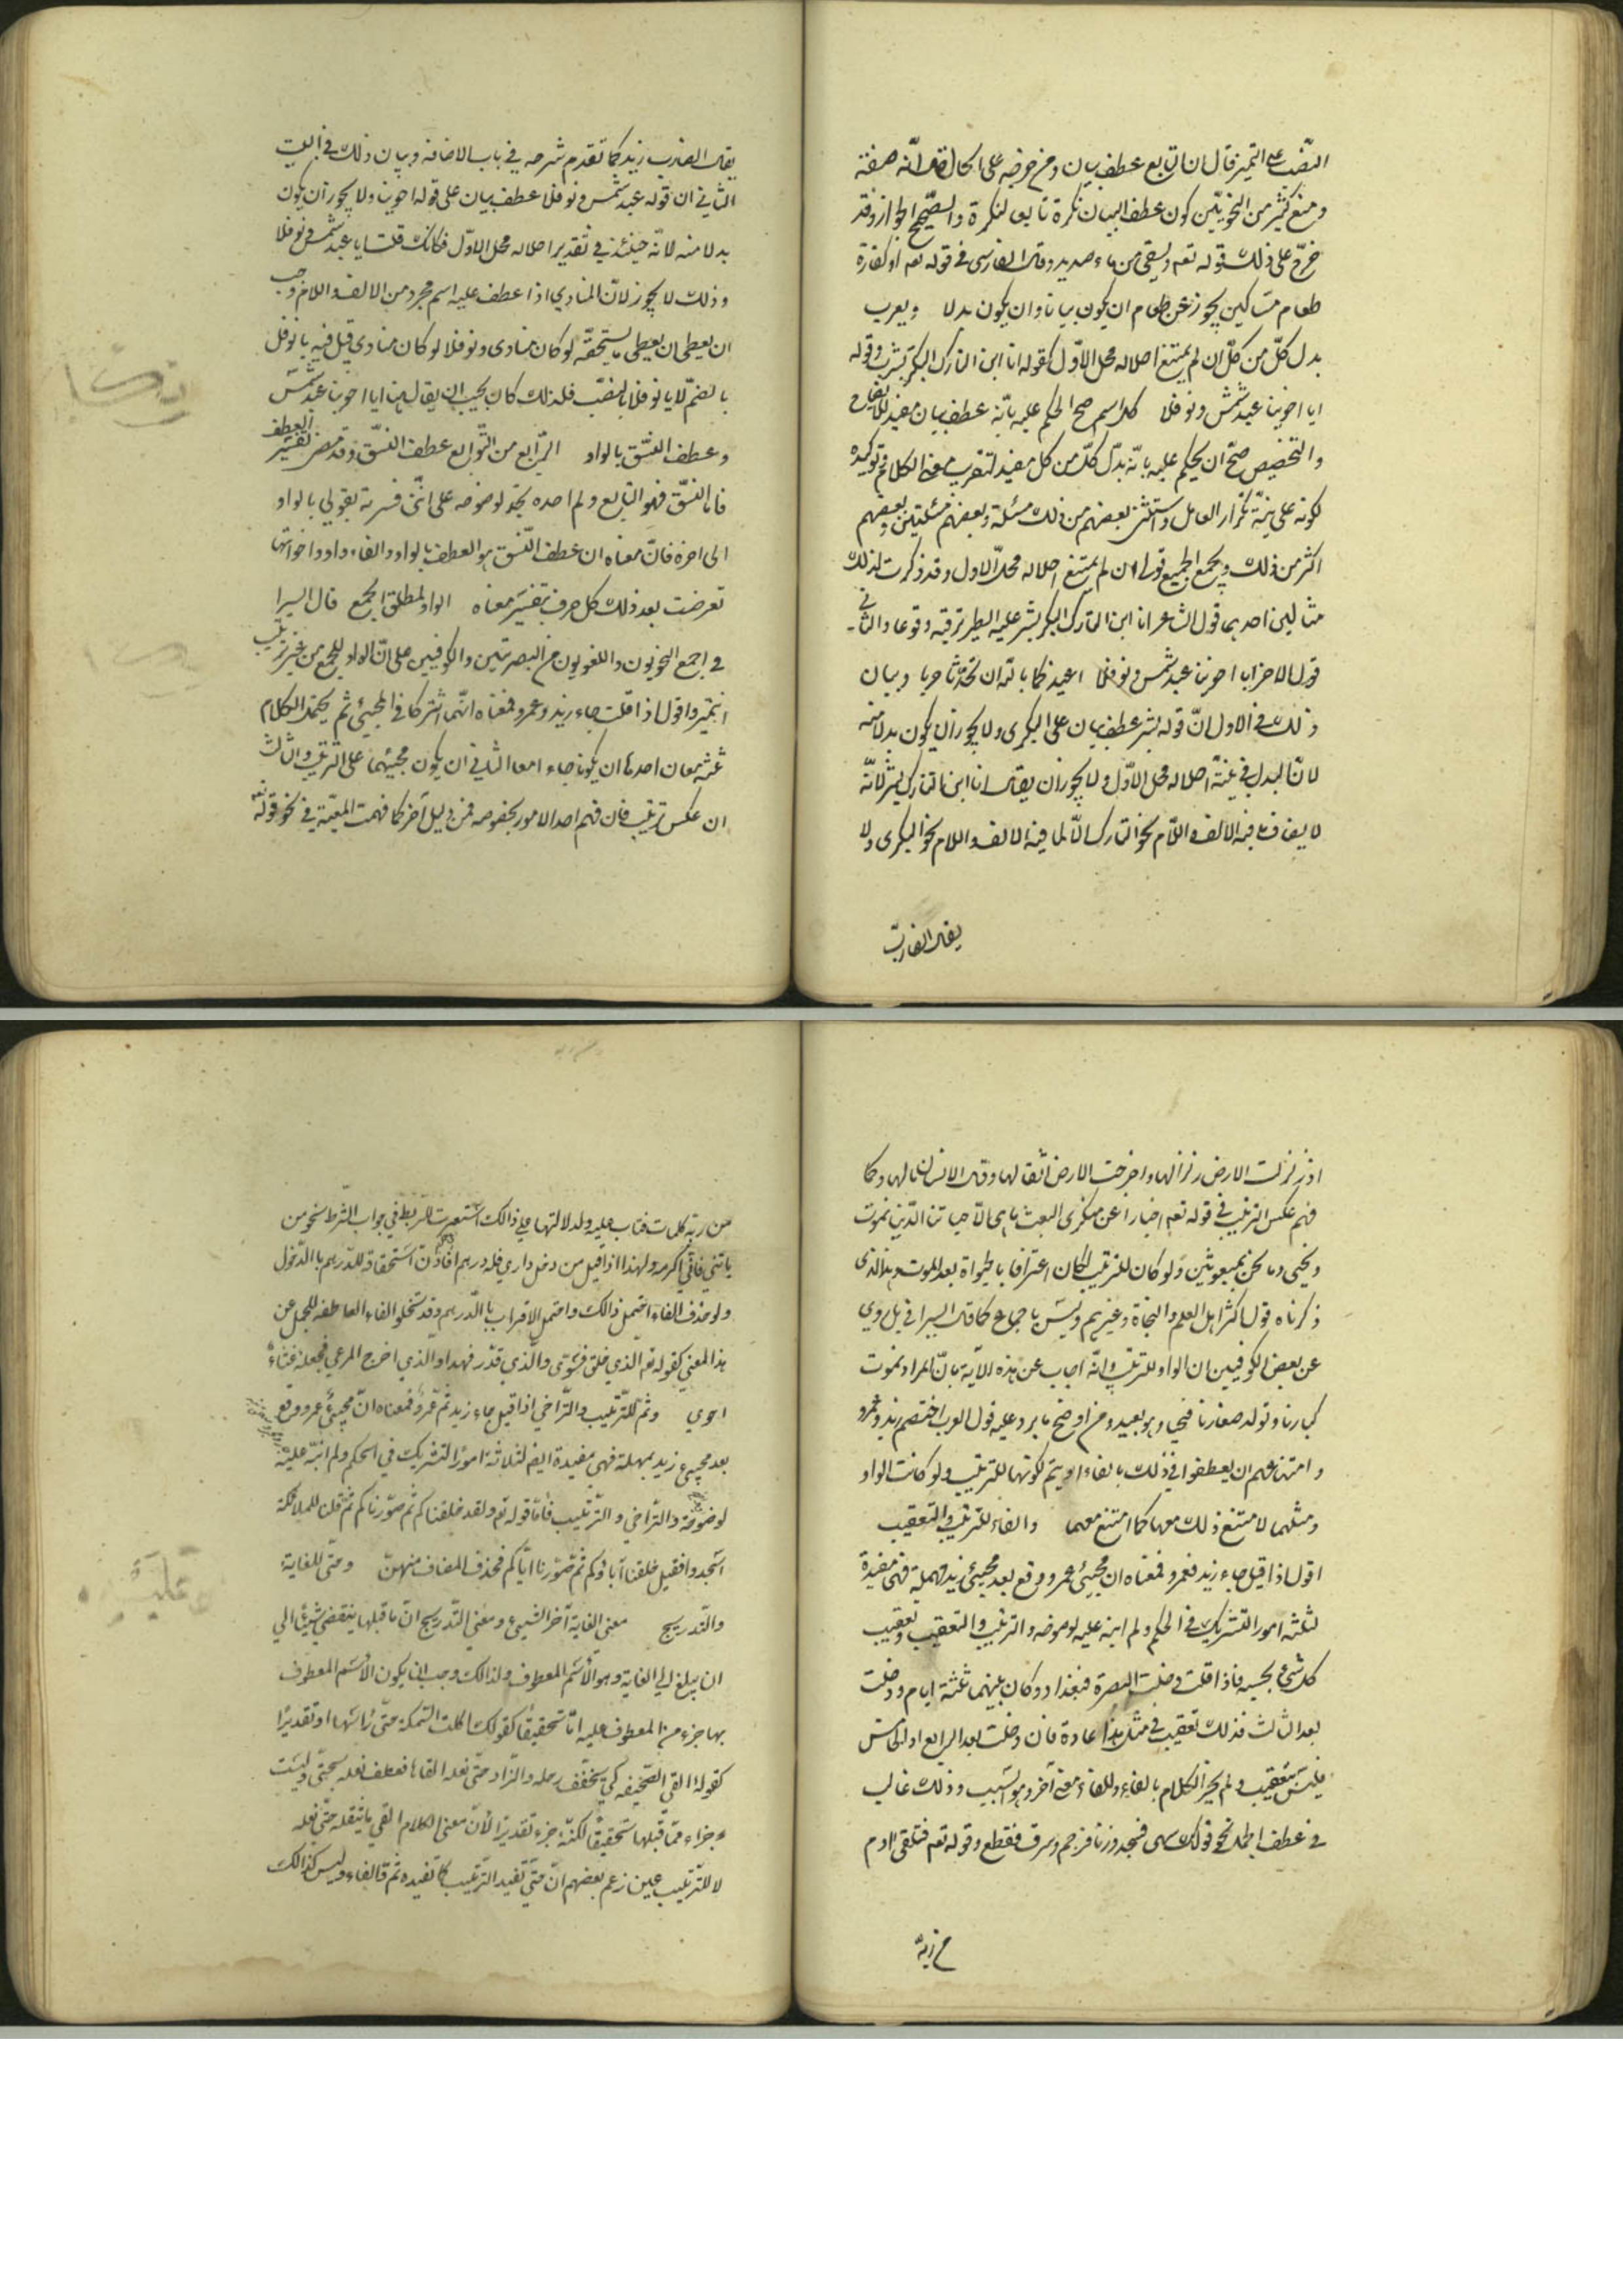 النّصب على التميز قال ان التابع عطف بيان ومن خرجه على الحال قال انّه صفة
ومنع كثير من النحويّين كون عطف البيان نكرة تابعا لنكرة والصّحيح الجواز وقد
خرّج على ذلك قوله تعه ويسقى من ماء صديد وقال الفارسى فى قوله تعه او كفارة
طعام مساكين يجوز عن طعام ان يكون بيانا وان يكون بدلا ويعرب
بدل كلّ من كلّ ان لم يمتنع احلاله محل الاوّل كقوله انا ابن التارك البكرى بشر وقوله
ايا اخوينا عبد شمس ونوفلا كل اسم صح الحكم عليه بانّه عطف بيان مفيد للايضاح
والتخصيص صحّ ان يحكم عليه بانّه بدل كلّ من كل مفيد لتقرير معنى الكلام وتوكيده
لكونه على نيّة تكرار العامل واستثنى بعضهم من ذلك مسئلة وبعضهم مسئلتين وبعضهم
اكثر من ذلك ويجمع الجميع قولى ان لم يمتنع احلاله محلّ الاول وقد ذكرت لذلك
مثالين احدهما قول الشاعر انا ابن التارك البكرى بشر عليه الطير ترقبه وقوعا والثانى
قول الاخر ايا اخوينا عبد شمس ونوفلا اعيذكما بالله ان تحدثا حربا وبيان
ذلك فى الاول انّ قوله بشر عطف بيان على البكرى ولا يجوز ان يكون بدلا منه
لانّ البدل فى نيّة احلاله محل الاوّل ولا يجوز ان يقال انا ابن التارك بشر لانّه
لا يضاف ما فيه الالف واللّام نحو التارك الّا لما فيه الالف واللام نحو البكرى ولا
يقال الضارب
يقال الضارب زيد كما تقدم شرحه فى باب الاضافة وبيان ذلك فى البيت
الثانى ان قوله عبد شمس ونوفلا عطف بيان على قوله اخوينا ولا يجوز ان يكون
بدلا منه لانّه حينئذ فى تقدير احلاله محل الاوّل فكانك قلت ايا عبد شمس ونوفلا
وذلك لا يجوز لانّ المنادى اذا عطف عليه اسم مجرد من الالف واللام وجب
ان يعطى ان يعطى ما يستحقّه لو كان منادى ونوفلا لو كان منادى قيل فيه يا نوفل
بالضمّ لا يا نوفلا بالنصب فلذلك كان يجب ان يقال هنا ايا اخوينا عبد شمس
وعطف النسّق بالواو الرّابع من التّوابع عطف النسّق وقد مضى تفسير العطف
فاما النسّق فهو التابع ولم احده بحد لوضوحه على انّنى فسرته بقولى بالواو
الى اخره فانّ معناه ان عطف النّسق هو العطف بالواو والفاء واو واخواتها
تعرضت بعد ذلك كل حرف بتفسير معناه الواو لمطلق الجمع قال السيرا
فى اجمع النحويون واللغويون من البصريين والكوفيين على انّ الواو للجمع من غير ترتيب
انتهى واقول اذا قلت جاء زيد وعمرو فمعناه انّهما اشتركا فى المجيئ ثم يحتمل الكلام
ثلثة معان احدها ان يكونا جاءا معا الثانى ان يكون مجيئهما على الترتيب والثالث
ان عكس ترتيب فان فهم احد الامور بخصوصه فمن دليل آخر كما فهمت المعيّة فى نحو قوله تعه
اذا زلزلت الارض زلزالها واخرجت الارض اثقالها وقال الانسان مالها وكما
فهم عكس الترتيب فى قوله تعه اخبارا عن منكرى البعث ما هى الّا حياتنا الدّنيا نموت
ونحيى وما نحن بمبعوثين ولو كان للترتيب لكان اعترافا بالحيوة بعد الموت وهذا الذى
ذكرناه قول اكثر اهل العلم والنحاة وغيرهم وليس باجماع كما قال السيرافى بل روى
عن بعض الكوفيين ان الواو للترتيب وانّه اجاب عن هذه الآية بانّ المراد نموت
كبارنا وتولد صغارنا فنحيا وهو بعيد ومن اوضح ما يرد عليه قول العرب اختصم زيد وعمرو
وامتناعهم ان يعطفوا فى ذلك بالفاء او بثمّ لكونهما للترتيب ولو كانت الواو
ومثلهما لامتنع ذلك معها كما امتنع معهما والفاء للترتيب والتعقيب
اقول اذا قيل جاء زيد فعمرو فمعناه ان مجيئ عمرو وقع بعد مجيئ زيد بلا مهلة فهى مفيدة
لثلثة امور التشريك فى الحكم ولم انبه عليه لوضوحه والترتيب والتعقيب وتعقيب
كل شئ بحسبه فاذا قلت دخلت البصرة فبغداد وكان بينهما ثلثة ايام ودخلت
بعد الثالث فذلك تعقيب فى مثل هذا عادة فان دخلت بعد الرابع او الخامس
فليس بتعقيب ولم يجز الكلام بالفاء وللفاء معنى آخر وهو التسبيب وذلك غالب
فى عطف الجمل نحو قولك سهى فسجد وزنا فرجم وسرق فقطع وقوله تعه فتلقى آدم
من ربّه
من ربّه كلمات فتاب عليه ولدلالتها على ذالك استعيرت للربط فى جواب الشّرط نحو من
يأتنى فانّى اكرمه ولهذا اذا قيل من دخل دارى فله درهم افاد استحقاقه للدّرهم بالدّخول
ولو حذف الفاء احتمل ذالك واحتمل الاقرار بالدّرهم وقد تخلو الفاء العاطفة للجمل عن
هذا المعنى كقوله تعه الّذى خلق فسّوى والّذى قدّر فهدا والّذى اخرج المرعى فجعله غثاءً
احوى وثم للتّرتيب والتّراخى اذا قيل جاء زيد ثمّ عمرو فمعناه انّ مجيئ عمرو وقع
بعد مجيئ زيد بمهلة فهى مفيدة ايضا لثلاثة امور التشريك فى الحكم ولم انبّه عليه
لوضوحه والتّراخى والتّرتيب فأمّا قوله تعه ولقد خلقناكم ثم صوّرناكم ثمّ قلنا للملائكة
اسجدوا فقيل خلقنا آباؤكم ثم صوّرنا ايّاكم فحذف المضاف منهنّ وحتّى للغاية
والتّدريج معنى الغاية آخر الشيئ ومعنى التّدريج انّ ما قبلها ينقضى شيئًا الى
ان يبلغ الى الغاية وهو الاسم المعطوف ولذالك وجب ان يكون الاسم المعطوف
بها جزء من المعطوف عليه امّا تحقيقًا كقولك اكلت السّمكة حتّى رأسها او تقديرًا
كقوله القى الصّحيفه كى يخفّف رحله والزّاد حتّى نعله القاها فعطف نعله بحتّى وليست
جزاء ممّا قبلها تحقيقًا لكنّه جزء تقديرًا لأنّ معنى الكلام القى ما يثقله حتّى نعله
لا للتّرتيب عين زعم بعضهم انّ حتّى تفيد التّرتيب كما تفيده ثمّ والفاء وليس كذالك